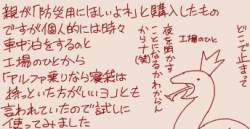 親が「防災用にほしいよネ」と購入したもの
ですが個人的には時々
車中泊をするのと
工場のひとから
「アルファ乗りなら寝袋は
持っといた方がいいヨ」とも
言われていたので試しに
使ってみました
どこで止まって
夜を明かす
ことになるかわからん
からナ(笑)
工場のひと